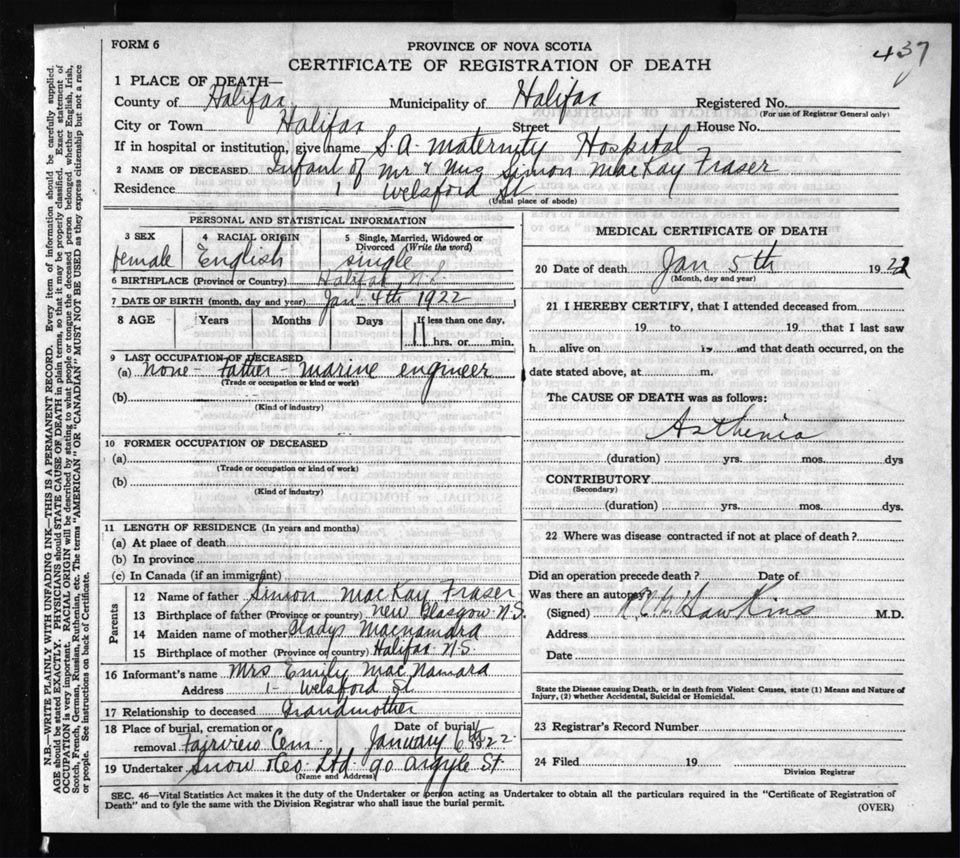 437
FORM 6
PROVINCE OF NOVA SCOTIA
CERTIFICATE OF REGISTRATION OF DEATH
1 PLACE OF DEATH—
County of Halifax Municipality of Halifax Registered No.
(For use of Registrar General only)
City or Town Halifax Street House No.
If in hospital or institution, give name S.A. Maternity Hospital
2 NAME OF DECEASED Infant of Mr & Mrs Simon MacKay Fraser
Residence 1 Welsford St
(Usual place of abode)
PERSONAL AND STATISTICAL INFORMATION
3 SEX 4 RACIAL ORIGIN 5 Single, Married, Widowed or Divorced (Write the word)
female English single
6 BIRTHPLACE (Province or Country) Halifax N.S.
7 DATE OF BIRTH (month, day and year) Jan 4th 1922
8 AGE Years Months Days If less than one day,
hrs. or min.
9 LAST OCCUPATION OF DECEASED
(a) none - Father - marine engineer
(Trade or occupation or kind or work)
(b)
(Kind of industry)
10 FORMER OCCUPATION OF DECEASED
(a)
(Trade or occupation or kind of work)
(b)
(Kind of industry)
11 LENGTH OF RESIDENCE (In years and months)
(a) At place of death
(b) In province
(c) In Canada (if an immigrant)
Parents
12 Name of father Simon MacKay Fraser
13 Birthplace of father (Province or country) New Glasgow N.S.
14 Maiden name of mother Gladys Macnamara
15 Birthplace of mother (Province or country) Halifax N.S.
16 Informant's name Mrs Emily MacNamara
Address 1- Welsford St
17 Relationship to deceased Grandmother
18 Place of burial, cremation or removal Fairview Cem. Date of burial January 6th 1922
19 Undertaker Snow & Co Ltd 90 Argyle St
(Name and Address)
MEDICAL CERTIFICATE OF DEATH
20 Date of death Jan 5th 1922
(Month, day and year)
21 I HEREBY CERTIFY, that I attended deceased from
19 to 19 that I last saw
h alive on 19 and that death occurred, on the
date stated above, at m.
The CAUSE OF DEATH was as follows:
Asthenia
(duration) yrs. mos. dys
CONTRIBUTORY
(Secondary)
(duration) yrs. mos. dys.
22 Where was disease contracted if not at place of death?
Did an operation precede death? Date of
Was there an autopsy
(Signed) Hawkins M.D.
Address
Date
State the Disease causing Death, or in death from Violent Causes, state (1) Means and Nature of
Injury, (2) whether Accidental, Suicidal or Homicidal.
23 Registrar's Record Number
24 Filed 19
Division Registrar
SEC. 46—Vital Statistics Act makes it the duty of the Undertaker or person acting as Undertaker to obtain all the particulars required in the "Certificate of Registration of
Death" and to fyle the same with the Division Registrar who shall issue the burial permit.
(OVER)
N.B.—WRITE PLAINLY WITH UNFADING INK—THIS IS A PERMANENT RECORD. Every item of information should be carefully supplied.
AGE should be stated EXACTLY. PHYSICIANS should STATE CAUSE OF DEATH in plain terms, so that it may be properly classified. Exact statement of
OCCUPATION is very important. RACIAL ORIGIN will be described by stating to what people or tongue the deceased person belonged whether English, Irish,
Scotch, French, German, Russian, Ruthenian, etc. The terms "AMERICAN" OR "CANADIAN" MUST NOT BE USED as they express citizenship but not a race
or people. See instructions on back of Certificate.